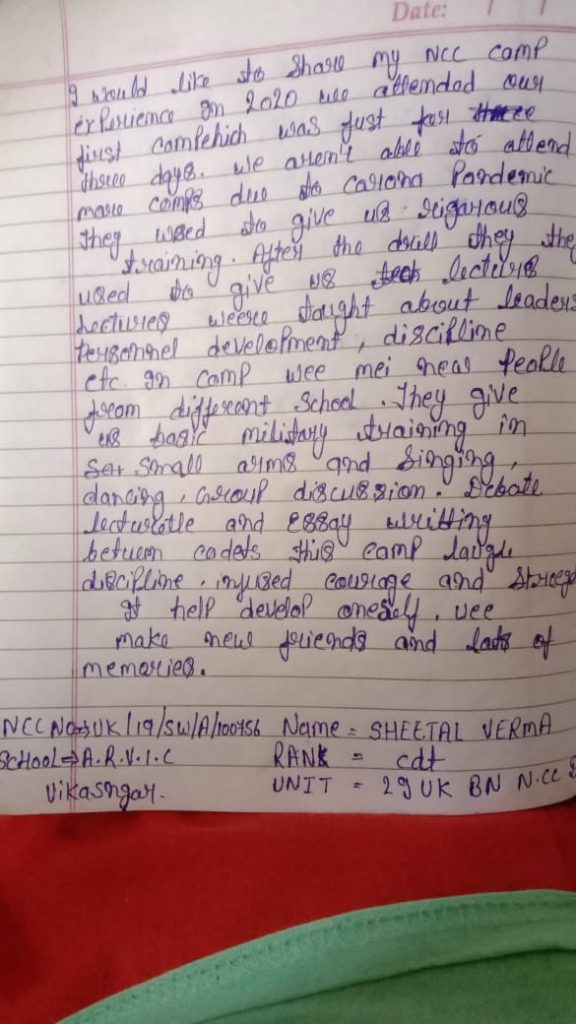 Date: / /
I would like to share my NCC camp
experience In 2020 we attemdad our
first campehich was just for
three days. We aren't able to attend
more camps due to carona Pandemic
They used to give us rigarous
training. After the drill they the
used to give us lectures
Lectures weere taught about leaders
Personnel development, discipline
etc. In camp wee mei new People
from different School. They give
us basic military training in
small arms and singing,
dancing, Group discussion. Debate
and essay writting
between cadets this camp
discipline. infused courage and
It help develop oneself. wee
make new friends and lots of
memories.
NCC No⇒UK/19/SW/A/100756 Name = SHEETAL VERMA
SCHOOL⇒A.R.V.I.C RANK = cdt
Vikasngar. UNIT = 29 UK BN N.CC